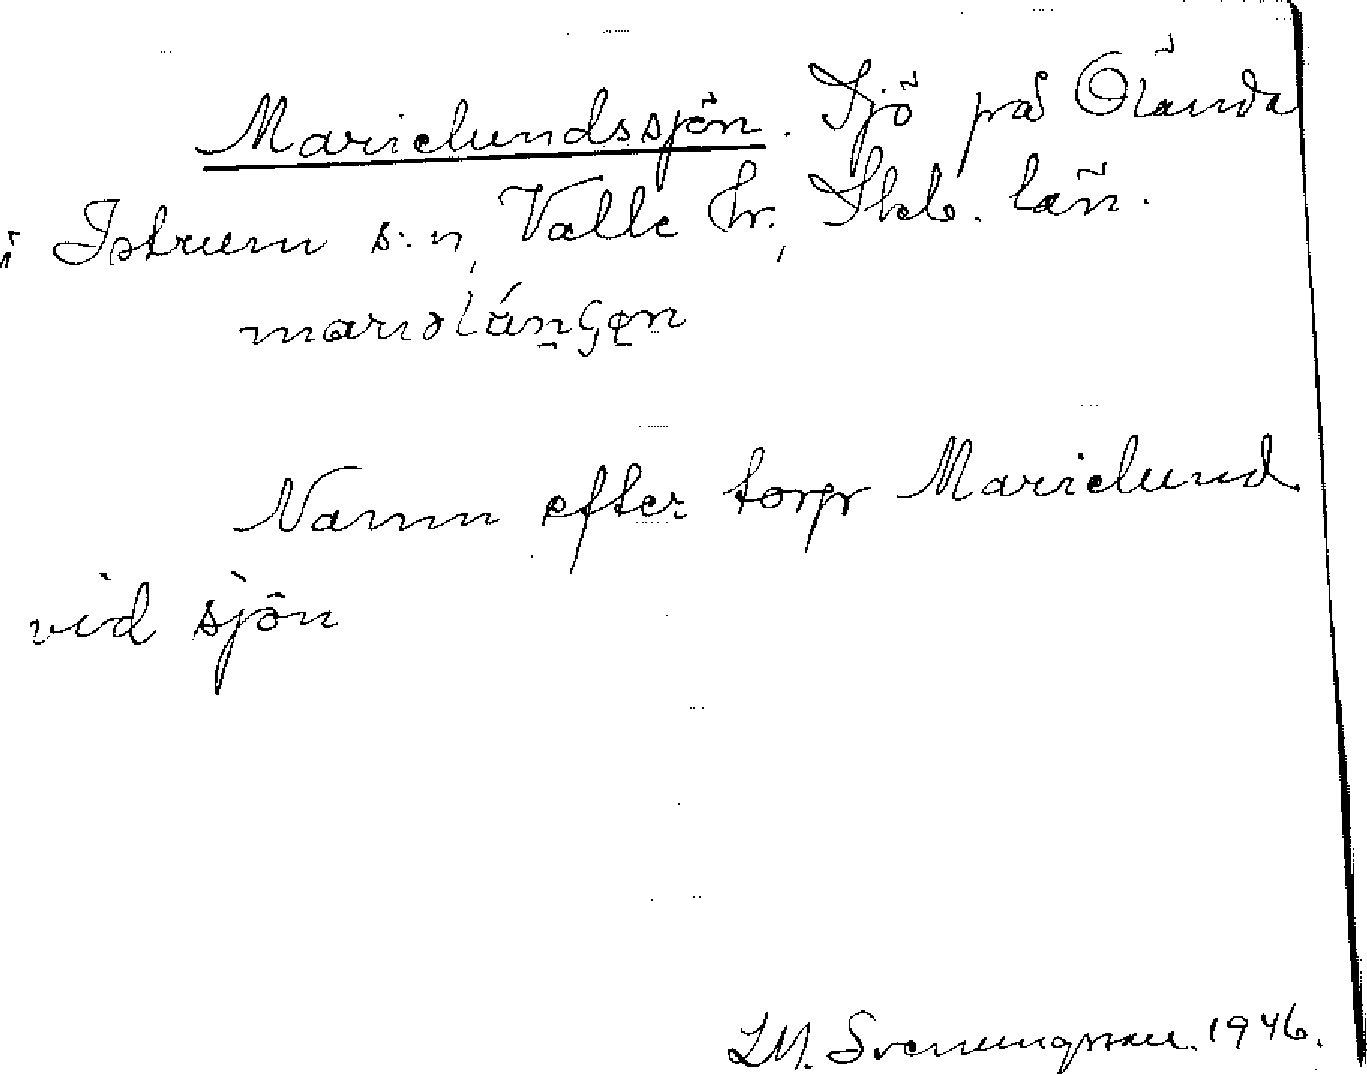 Marielundssjön. Sjö på Ölanda
i Istrum s:n, Valle hr., Skb. län.
Namn efter torp Marielund
vid sjön
LM. Svenungsson. 1946.